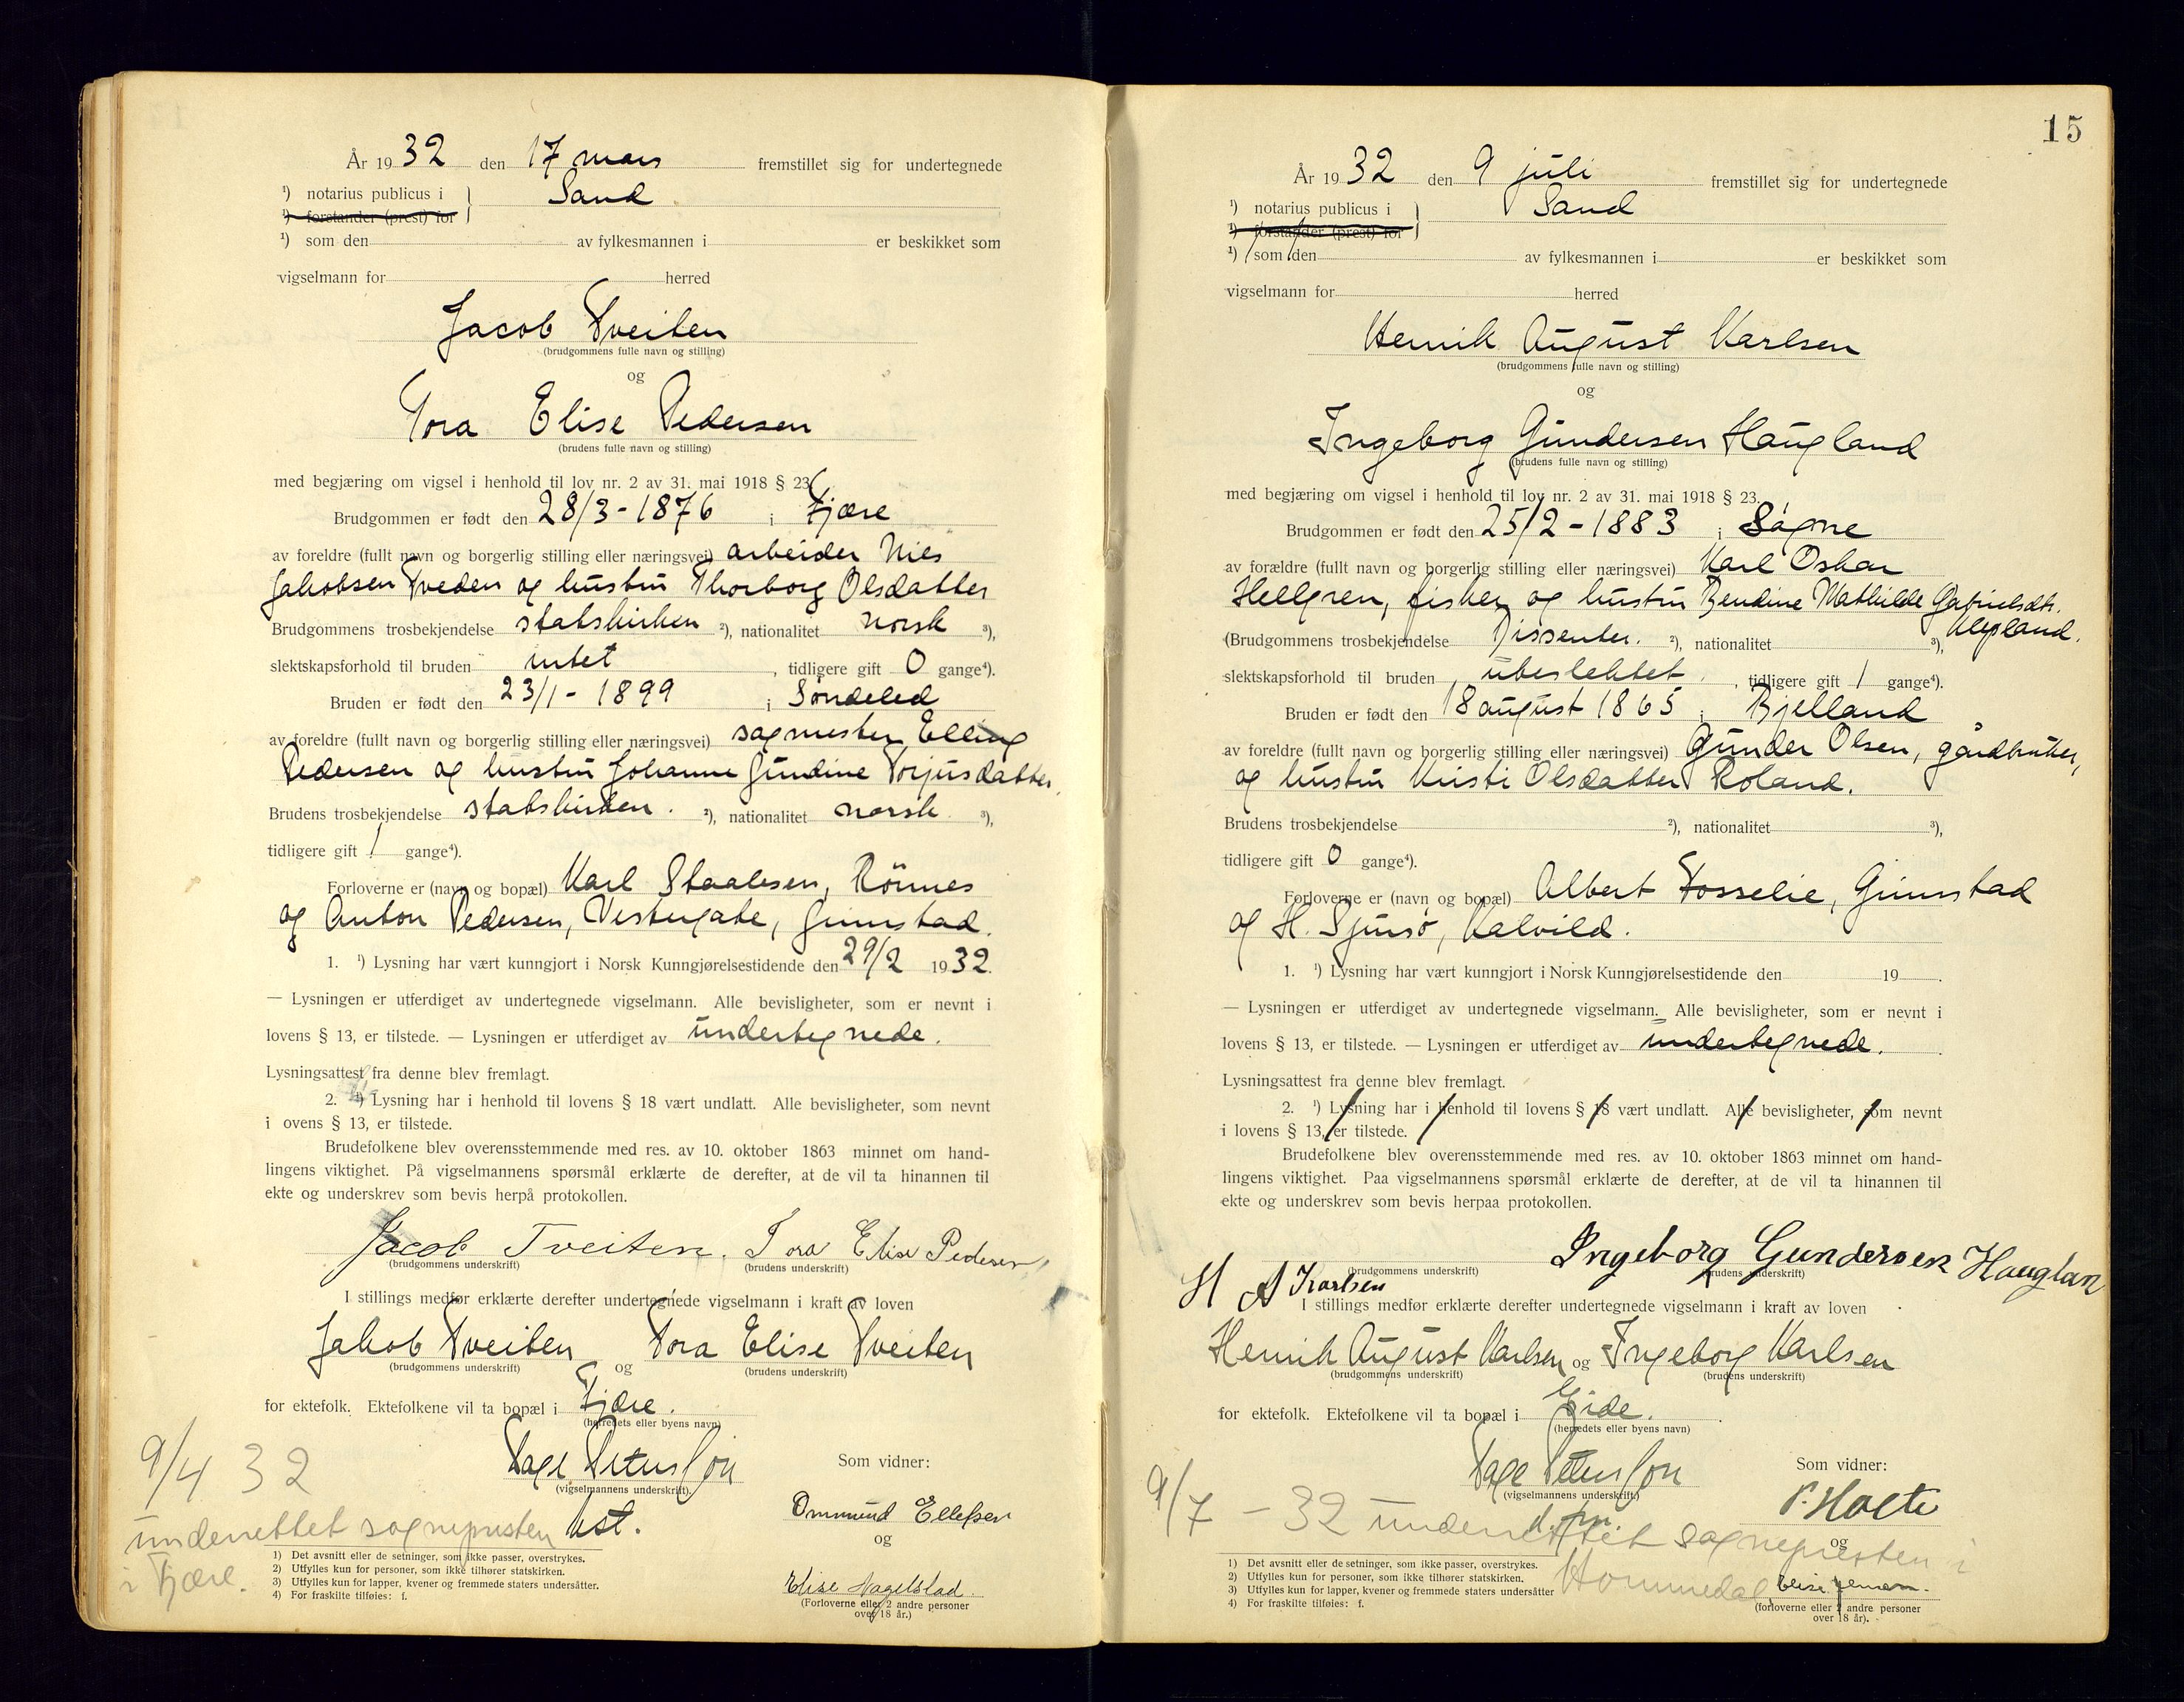 År 1932 den 17 mars fremstillet sig for undertegnede
¹) notarius publicus i } Sand
¹) forstander (prest) for
¹) som den av fylkesmannen i er beskikket som
vigselmann for herred
Jacob Tveiten
(brudgommens fulle navn og stilling)
og
Tora Elise Pedersen
(brudens fulle navn og stilling)
med begjæring om vigsel i henhold til lov nr. 2 av 31. mai 1918 § 23.
Brudgommen er født den 28/3 - 1876 i Fjære
av foreldre (fullt navn og borgerlig stilling eller næringsvei) arbeider Nils
Jakobsen Tveden og hustru Thorborg Olsdatter
Brudgommens trosbekjendelse statskirken ²), nationalitet norsk ³),
slektskapsforhold til bruden intet , tidligere gift 0 gange⁴).
Bruden er født den 23/1 - 1899 i Søndeled
av foreldre (fullt navn og borgerlig stilling eller næringsvei) sagmester Elling
Pedersen og hustru Johanne Gundine Torjusdatter.
Brudens trosbekjendelse statskirken . ²), nationalitet norsk ³),
tidligere gift 1 gange⁴).
Forloverne er (navn og bopæl) Karl Staalesen, Rönnes
og Anton Pedersen, Vestergate, Grimstad.
1. ¹) Lysning har vært kunngjort i Norsk Kunngjørelsestidende den 29/2 1932.
— Lysningen er utferdiget av undertegnede vigselmann. Alle bevisligheter, som er nevnt i
lovens § 13, er tilstede. — Lysningen er utferdiget av undertegnede.
Lysningsattest fra denne blev fremlagt.
2. ¹) Lysning har i henhold til lovens § 18 vært undlatt. Alle bevisligheter, som nevnt
i ovens § 13, er tilstede.
Brudefolkene blev overensstemmende med res. av 10. oktober 1863 minnet om hand-
lingens viktighet. På vigselmannens spørsmål erklærte de derefter, at de vil ta hinannen til
ekte og underskrev som bevis herpå protokollen.
Jacob Tveiten. Tora Elise Pedersen,
(brudgommens underskrift) (brudens underskrift)
I stillings medfør erklærte derefter undertegnede vigselmann i kraft av loven
Jakob Tveiten og Tora Elise Tveiten
(brudgommens underskrift) (brudens underskrift)
for ektefolk. Ektefolkene vil ta bopæl i Fjære.
(herredets eller byens navn)
9/4 32
Som vidner:
(vigselmannens underskrift).
Ommund Ellefsen
underrettet sognepresten
og
i Fjære.
Elise Nagelstad.
(Forloverne eller 2 andre personer
over 18 år.)
1) Det avsnitt eller de setninger, som ikke passer, overstrykes.
2) Utfylles kun for personer, som ikke tilhører statskirken.
3) Utfylles kun for lapper, kvener og fremmede staters undersåtter.
4) For fraskilte tilføies: f.
15
År 1932 den 9 juli fremstillet sig for undertegnede
¹) notarius publicus i } Sand
¹) forstander (prest) for
¹) som den av fylkesmannen i er beskikket som
vigselmann for herred
Henrik August Karlsen
(brudgommens fulle navn og stilling)
og
Ingeborg Gundersen Haugland
(brudens fulle navn og stilling)
med begjæring om vigsel i henhold til lov nr. 2 av 31. mai 1918 § 23.
Brudgommen er født den 25/2 - 1883 i Søgne
av forældre (fullt navn og borgerlig stilling eller næringsvei) Karl Oskar
Hellgren, fisker og hustru Bendine Mathilde Gabrielsdtr.
Klepland.
(Brudgommens trosbekjendelse Dissenter. ²), nationalitet ³),
slektskapsforhold til bruden ubeslektet , tidligere gift 1 gange⁴).
Bruden er født den 18 august 1865 i Bjelland
av foreldre (fullt navn og borgerlig stilling eller næringsvei) Gunder Olsen, gårdbruker,
og hustru Kristi Olsdatter Roland.
Brudens trosbekjendelse ²), nationalitet ³),
tidligere gift 0 gange⁴).
Forloverne er (navn og bopæl) Albert Fosselie, Grimstad
og H. Sjursø, Kalvild.
1. ¹) Lysning har vært kunngjort i Norsk Kunngjørelsestidende den 19 .
— Lysningen er utferdiget av undertegnede vigselmann. Alle bevisligheter, som er nevnt i
lovens § 13, er tilstede. — Lysningen er utferdiget av undertegnede.
Lysningsattest fra denne blev fremlagt.
2. ¹) Lysning har i henhold til lovens § 18 vært undlatt. Alle bevisligheter, som nevnt
i lovens § 13, er tilstede.
Brudefolkene blev overensstemmende med res. av 10. oktober 1863 minnet om hand-
lingens viktighet. Paa vigselmannens spørsmål erklærte de derefter, at de vil ta hinannen til
ekte og underskrev som bevis herpaa protokollen.
H A Karlsen Ingeborg Gundersen Hauglan
(brudgommens underskrift) (brudens underskrift)
I stillings medfør erklærte derefter undertegnede vigselmann i kraft av loven
Henrik August Karlsen og Ingeborg Karlsen
(brudgommens underskrift) (brudens underskrift)
for ektefolk. Ektefolkene vil ta bopæl i Eide.
(herredets eller byens navn)
Som vidner:
(vigselmannens underskrift)
P. Holte
9/7 - 32 underrettet sognepresten i
og
Hommedal
(forloverne eller 2 andre personer
over 18 år).
1) Det avsnitt eller de setninger, som ikke passer, overstrykes.
2) Utfylles kun for personer, som ikke tilhører statskirken.
3) Utfylles kun for lapper, kvener og fremmede staters undersåtter
4) For fraskilte tilføies: f.